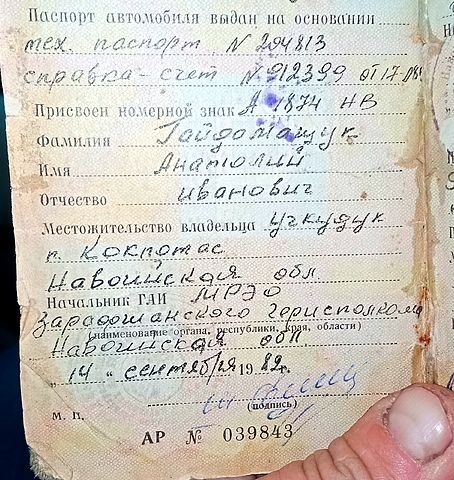 Паспорт автомобиля выдан на основании
тех. паспорт N 204813
справка-счет N 912399 от 17-
Присвоен номерной знак А 1874 НВ
Фамилия Гайдамащук
Имя Анатолий
Отчество Иванович
Местожительство владельца Учкудук
п. Кокпотас
Навоийская обл
Начальник ГАИ МРЭО
Зарафшанского горисполкома
(наименование органа, республики, края, области)
Навоийская обл
"14" сентября 1982г.
(подпись)
М. П.
АР № 039843